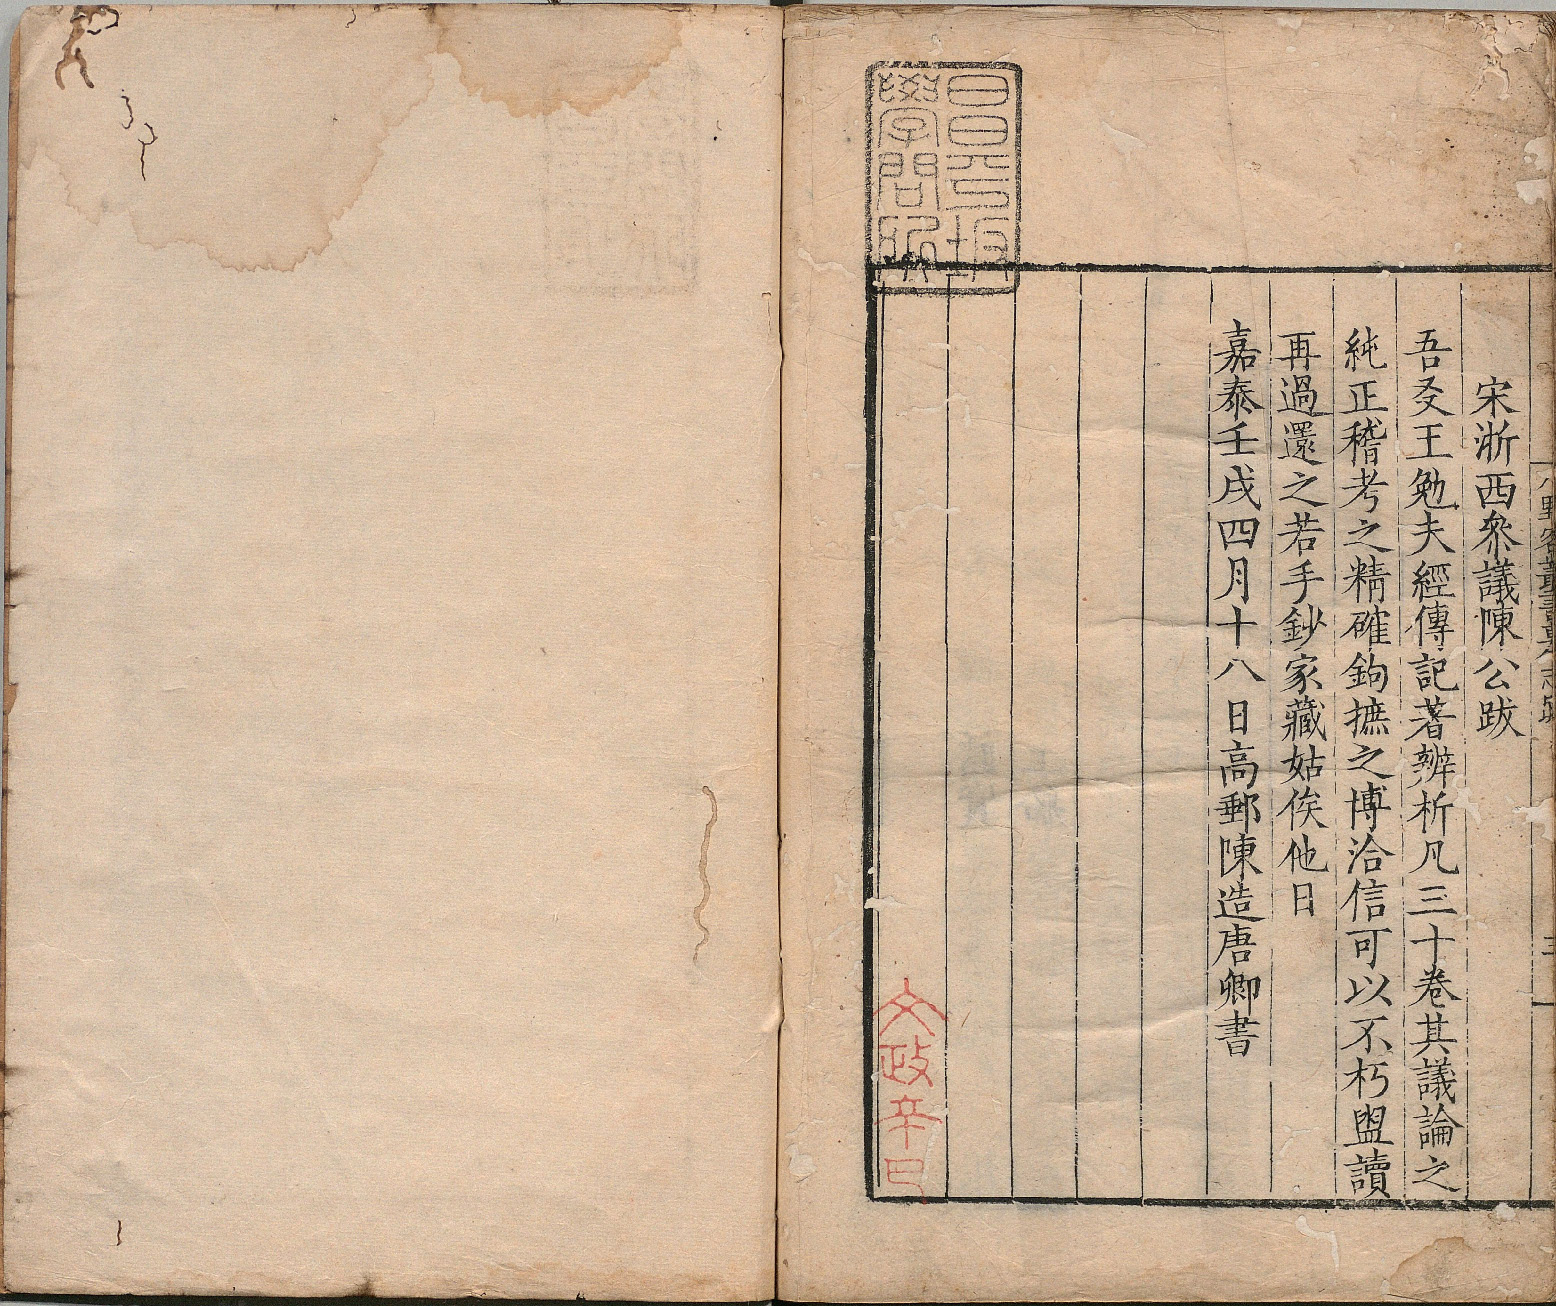 宋浙西叅議陳公跋
吾友王勉夫經傳記著辨析凡三十卷其議論之
純正稽考之精確鉤摭之博洽信可以不朽盥讀
再過還之若手鈔家藏姑俟他日
嘉泰壬戌四月十八日高郵陳造唐卿書
昌平坂
學問所
文政辛巳